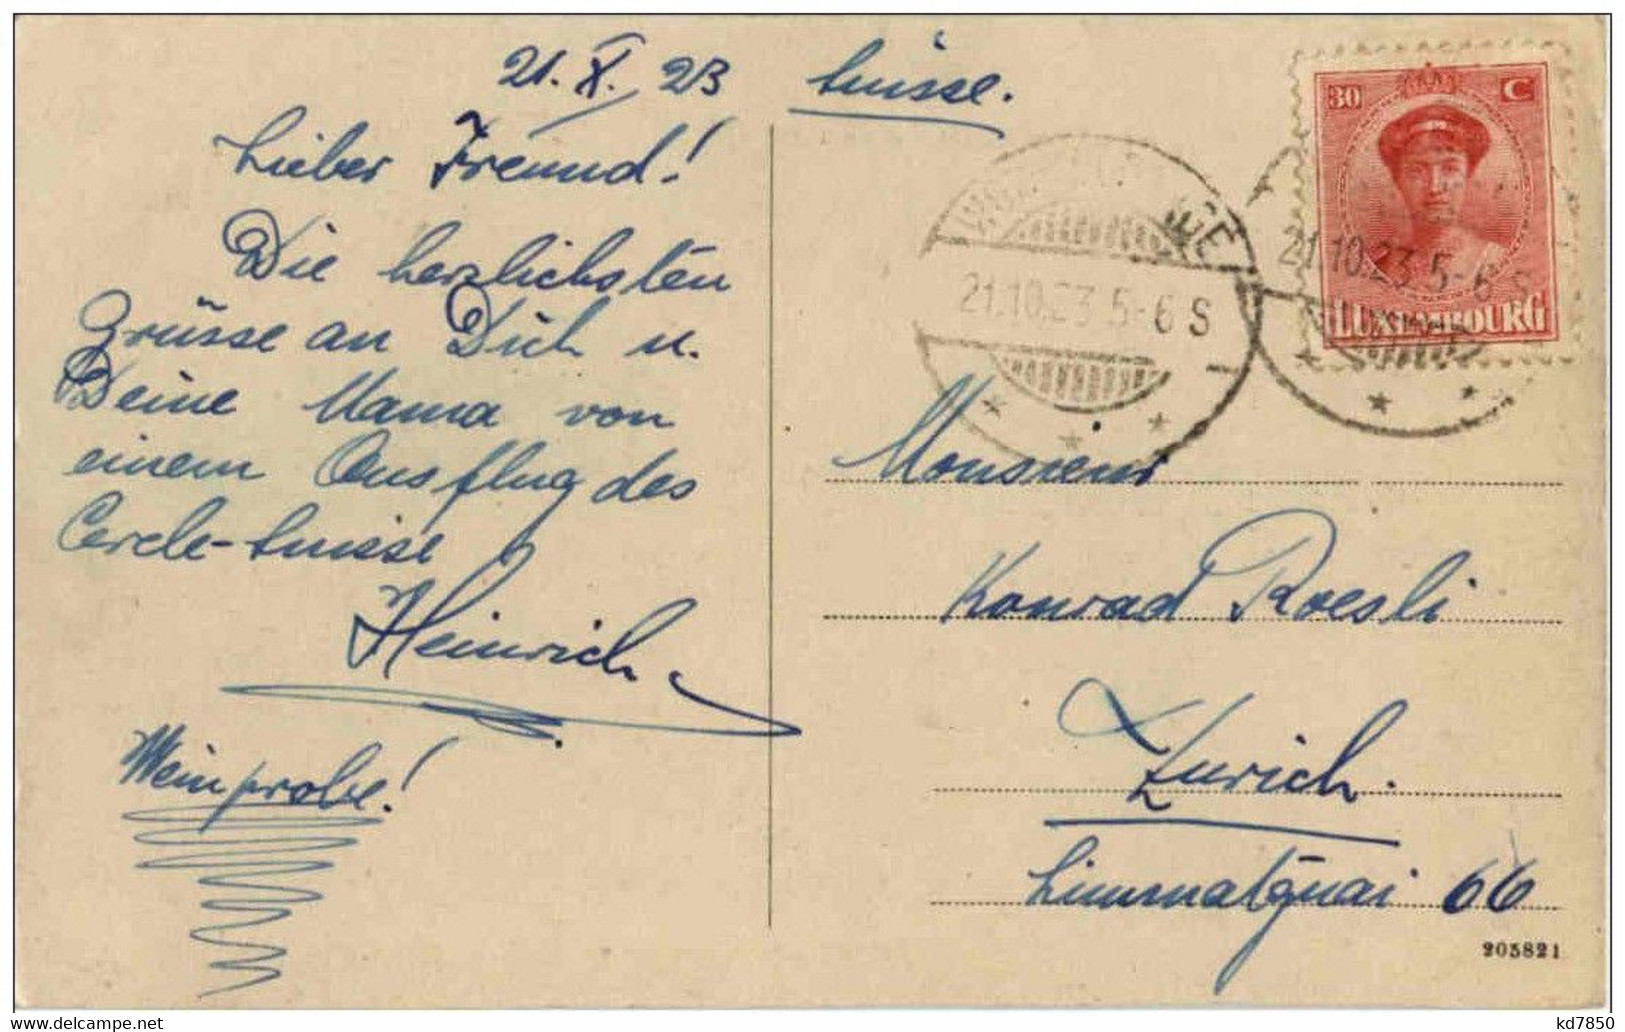 21. X. 23
Lieber Freund!
Die herzlichsten
Grüsse an Dich u.
Deine Mama von
einem Ausflug des
Cercle-Suisse
Heinrich
Weinprobe!
Suisse.
30 C
LUXEMBOURG
21.10.23 5-6 S
21.10.23 5-6 S
Monsieur
Konrad Roesli
Zürich.
Limmatquai 66
203821
kd7850